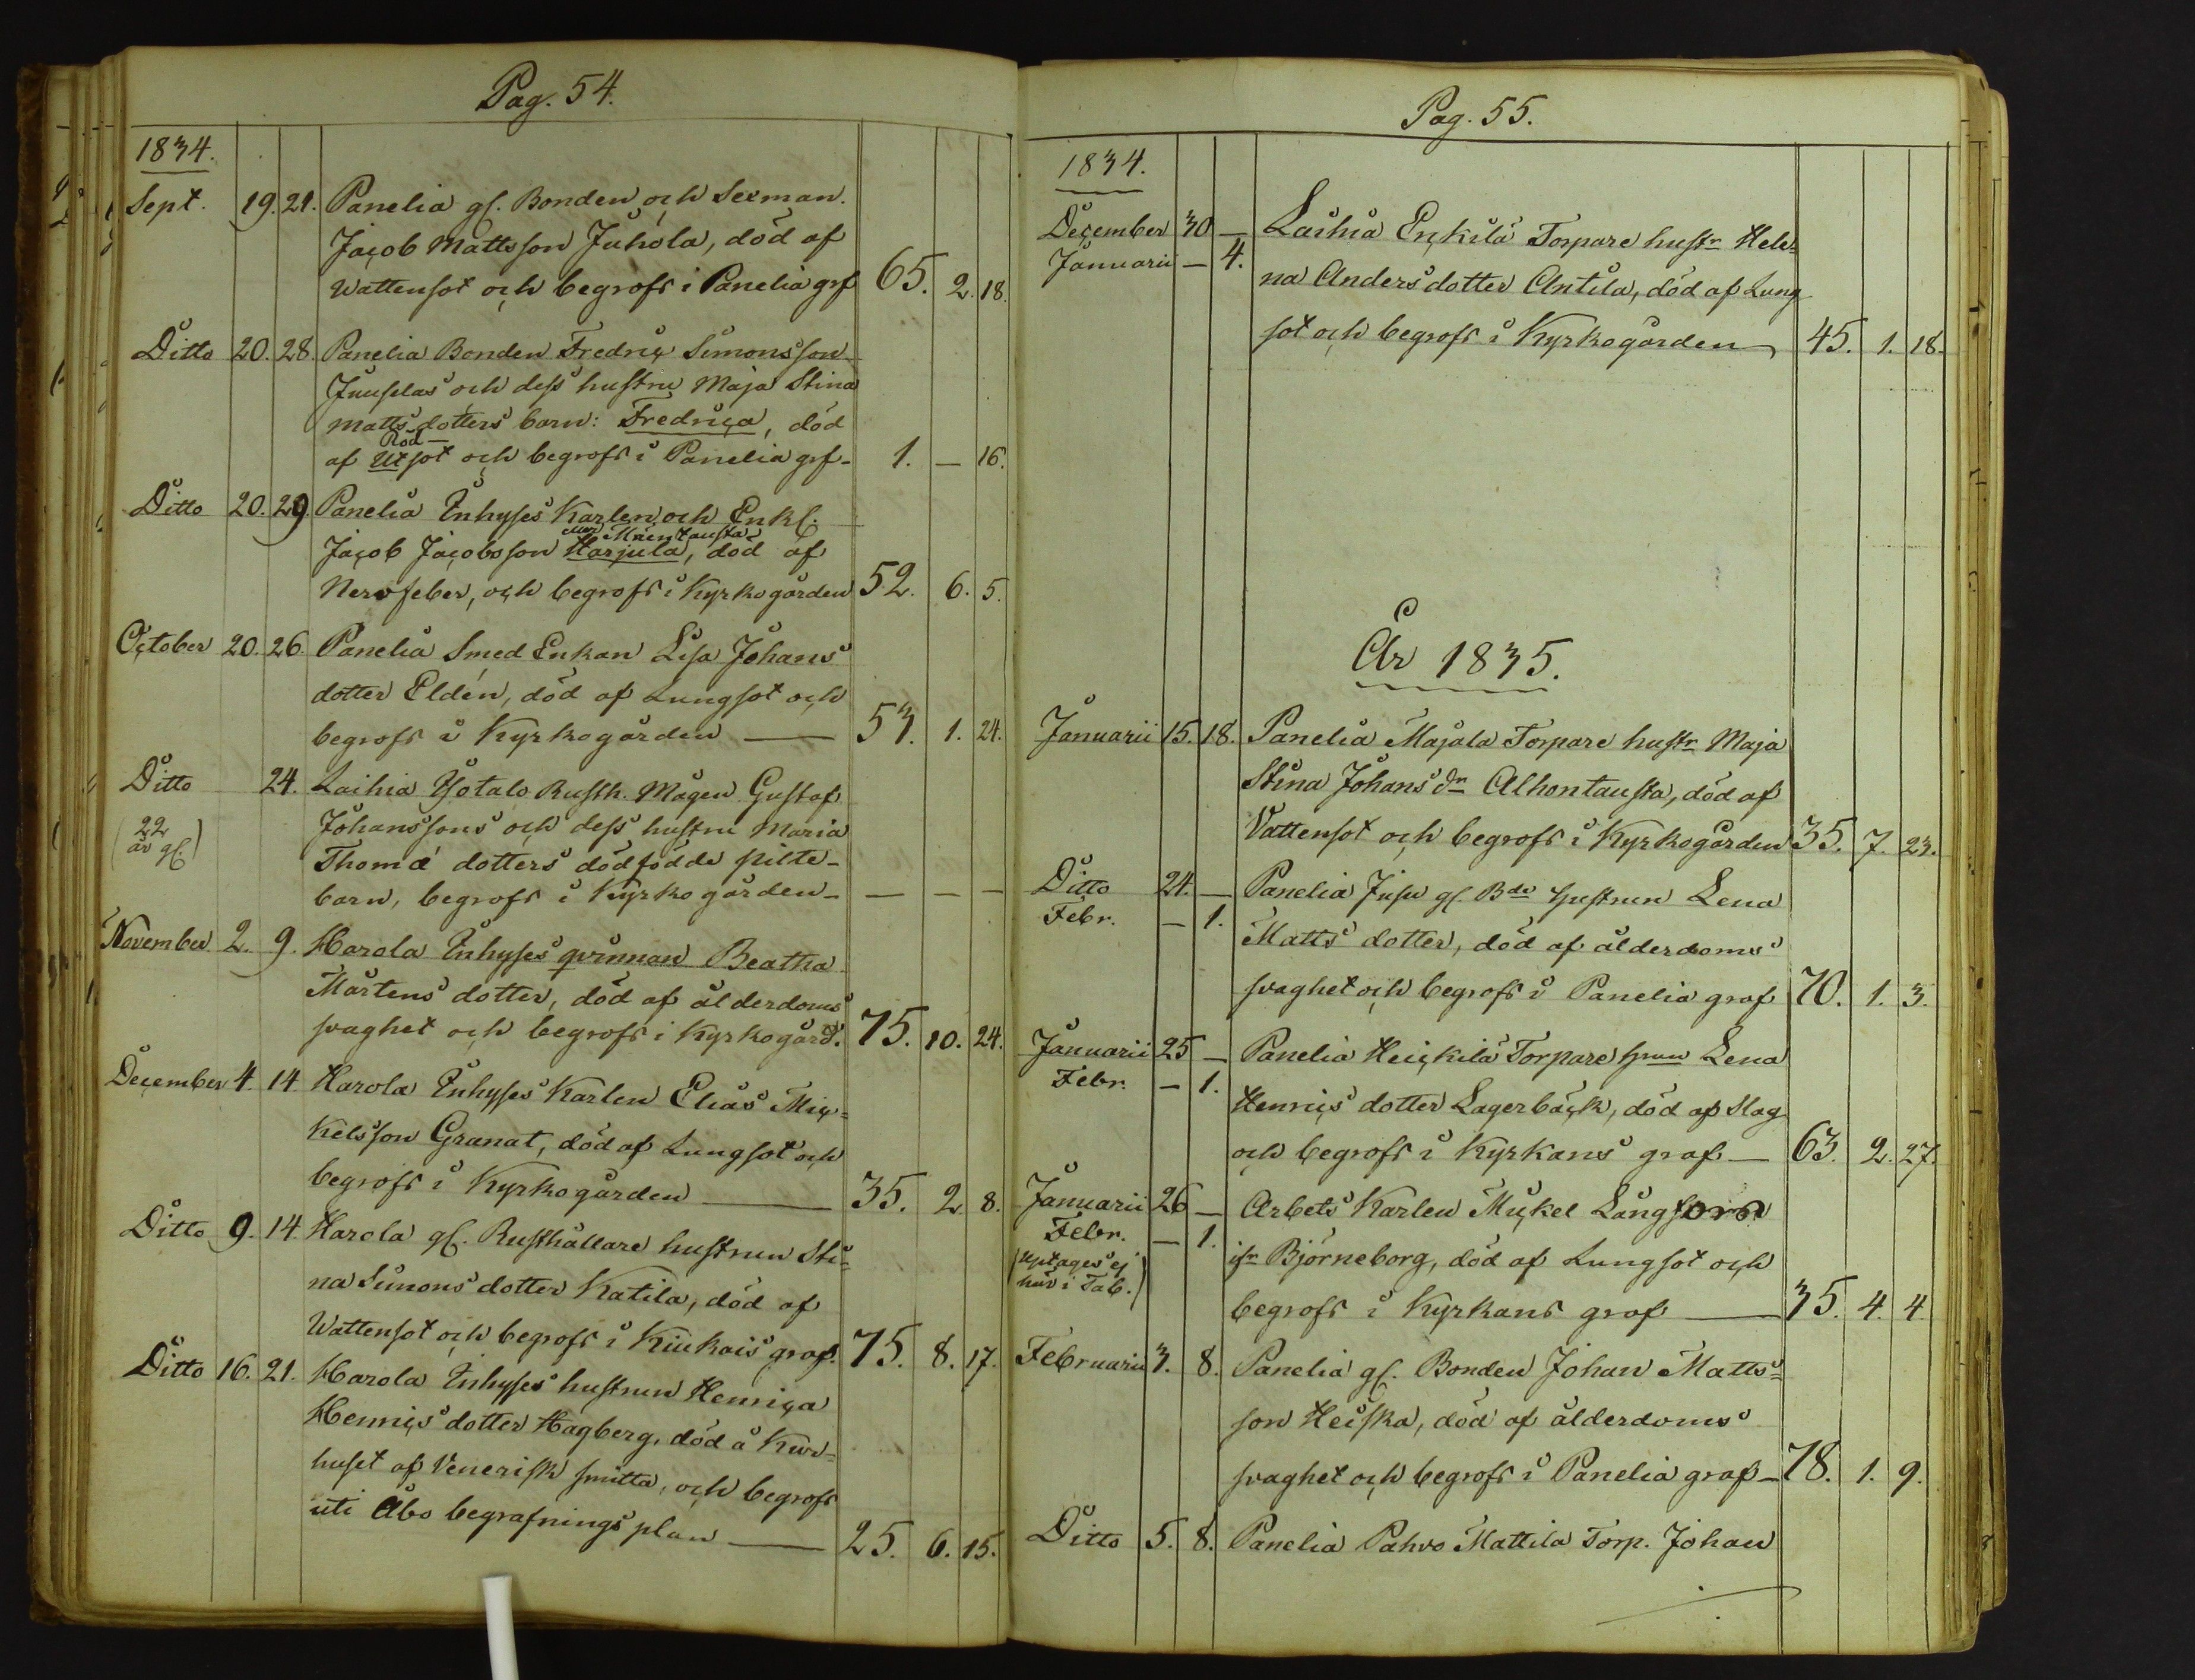 Pag. 54.
1834.
Sept. 19. 21. Panelia gl. Bonden och Sexman.
Jacob Mattsson Juhola, död af
Wattensot och begrofs i Panelia grf 65. 2. 18.
Ditto 20. 28. Panelia Bonden Fredric Simonsson
Juuselas och dess hustru Maja Stina
Mattsdotters barn: Fredrica, död
Röd
af Utsot och begrofs i Panelia grf - 1. — 16.
Ditto 20. 29. Panelia Inhyses Karlen och Enkl.
Mäentausta
Jacob Jacobsson Harjula, död af
Nervfeber, och begrofs i Kyrkogården 52. 6. 5.
October 20. 26. Panelia Smed Enkan Lisa Johans
dotter Eldén, död af Lungsot och
begrofs i Kyrkogården — 53. 1. 24.
Ditto 24. Laihia Ysotalo Rusth. Mågen Gustaf
(22 år gl.) Johanssons och dess hustru Maria
Thomæ dotters dödfödde pilte-
barn, begrofs i Kyrkogården - — — —
November 2. 9. Harola Inhyses qvinnan Beatha
Mårtens dotter, död af ålderdoms
svaghet och begrofs i Kyrkogård. 75. 10. 24.
December 4. 14. Harola Inhyses Karlen Elias Mic-
kelsson Granat, död af Lungsot och
begrofs i Kyrkogården — 35. 2. 8.
Ditto 9. 14. Harola gl. Rusthållare hustrun Sti-
na Simons dotter Katila, död af
Wattensot och begrofs i Kiukais graf. 75. 8. 17.
Ditto 16. 21. Harola Inhyses hustrun Henrica
Henrics dotter Hagberg, död å Kur-
huset af Venerisk smitta, och begrofs
uti Åbo begrafnings plan — 25. 6. 15.
Pag. 55.
1834.
December 30 — Laihia Enkilä Torpare hustr Hele-
Januarii — 4. na Anders dotter Antila, död af Lung
sot och begrofs i Kyrkogården 45. 1. 18.
År 1835.
Januarii 15. 18. Panelia Majala Torpare hustr Maja
Stina Johans dr Alhontausta, död af
Vattensot och begrofs i Kyrkogården 35. 7. 23.
Ditto 24. — Panelia Jusu gl. Bde hustrun Lena
Febr. — 1. Matts dotter, död af ålderdoms
svaghet och begrofs i Panelia graf 70. 1. 3.
Januarii 25 — Panelia Heickilä Torpare hrun Lena
Febr. — 1. Henrics dotter Lagerbäck, död af Slag
och begrofs i Kyrkans graf — 63. 2. 27.
Januarii 26 — Arbets Karlen Mickel Långfors
Febr. — 1. ifr Björneborg, död af Lungsot och
(uptages ej
här i Tab.) begrofs i Kyrkans graf — 35. 4. 4.
Februarii 3. 8. Panelia gl. Bonden Johan Matts-
son Heiska, död af ålderdoms
svaghet och begrofs i Panelia graf — 78. 1. 9.
Ditto 5. 8. Panelia Pahvo Mattila Torp. Johan